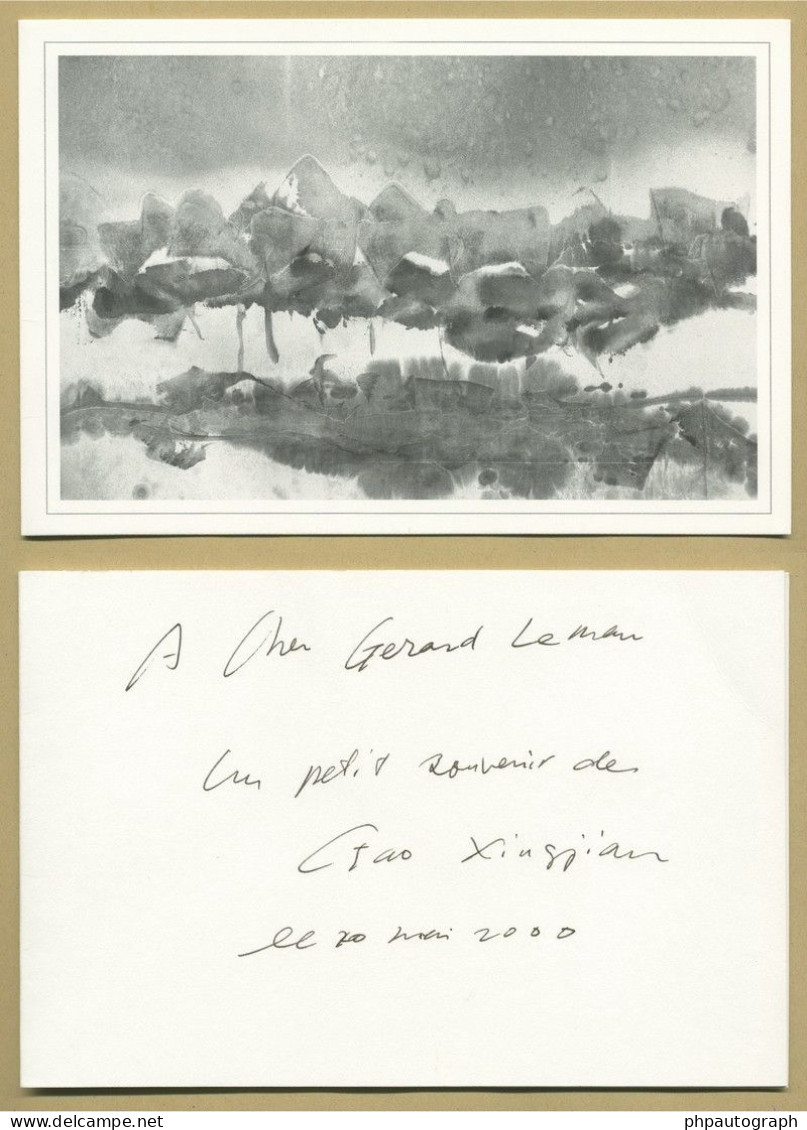 A Cher Gerard Leman
Un petit souvenir de
Gao Xingjian
le 20 mai 2000
the.delcampe.website
phpautograph